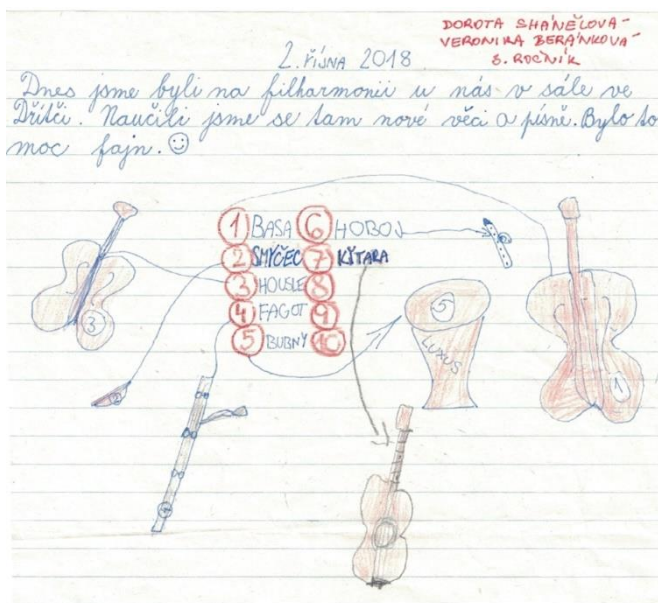 DOROTA SHÁNĚLOVÁ
VERONIKA BERÁNKOVÁ
3. ROČNÍK
2. ŘÍJNA 2018
Dnes jsme byli na filharmonii u nás v sále ve
Dřítči. Naučili jsme se tam nové věci a písně. Bylo to
moc fajn. ☺
1 BASA 6 HOBOJ
2 SMYČEC 7 KYTARA
3 HOUSLE 8
4 FAGOT 9
5 BUBNY 10
3
5
LUXUS
1
2
4